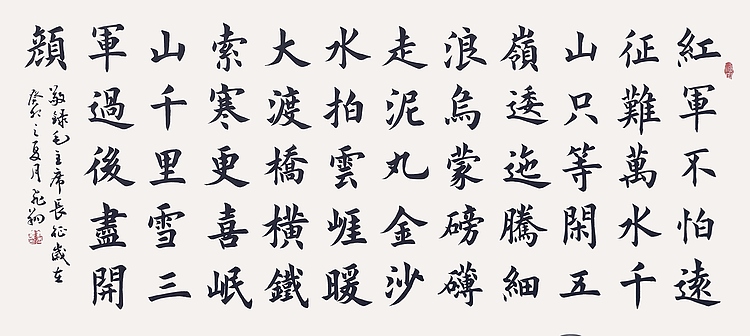 紅軍不怕遠
征難萬水千
山只等閑五
嶺逶迤騰細
浪烏蒙磅礴
走泥丸金沙
水拍雲崕暖
大渡橋橫鐵
索寒更喜岷
山千里雪三
軍過後盡開
顔
敬錄毛主席長征歲在
癸卯之夏月